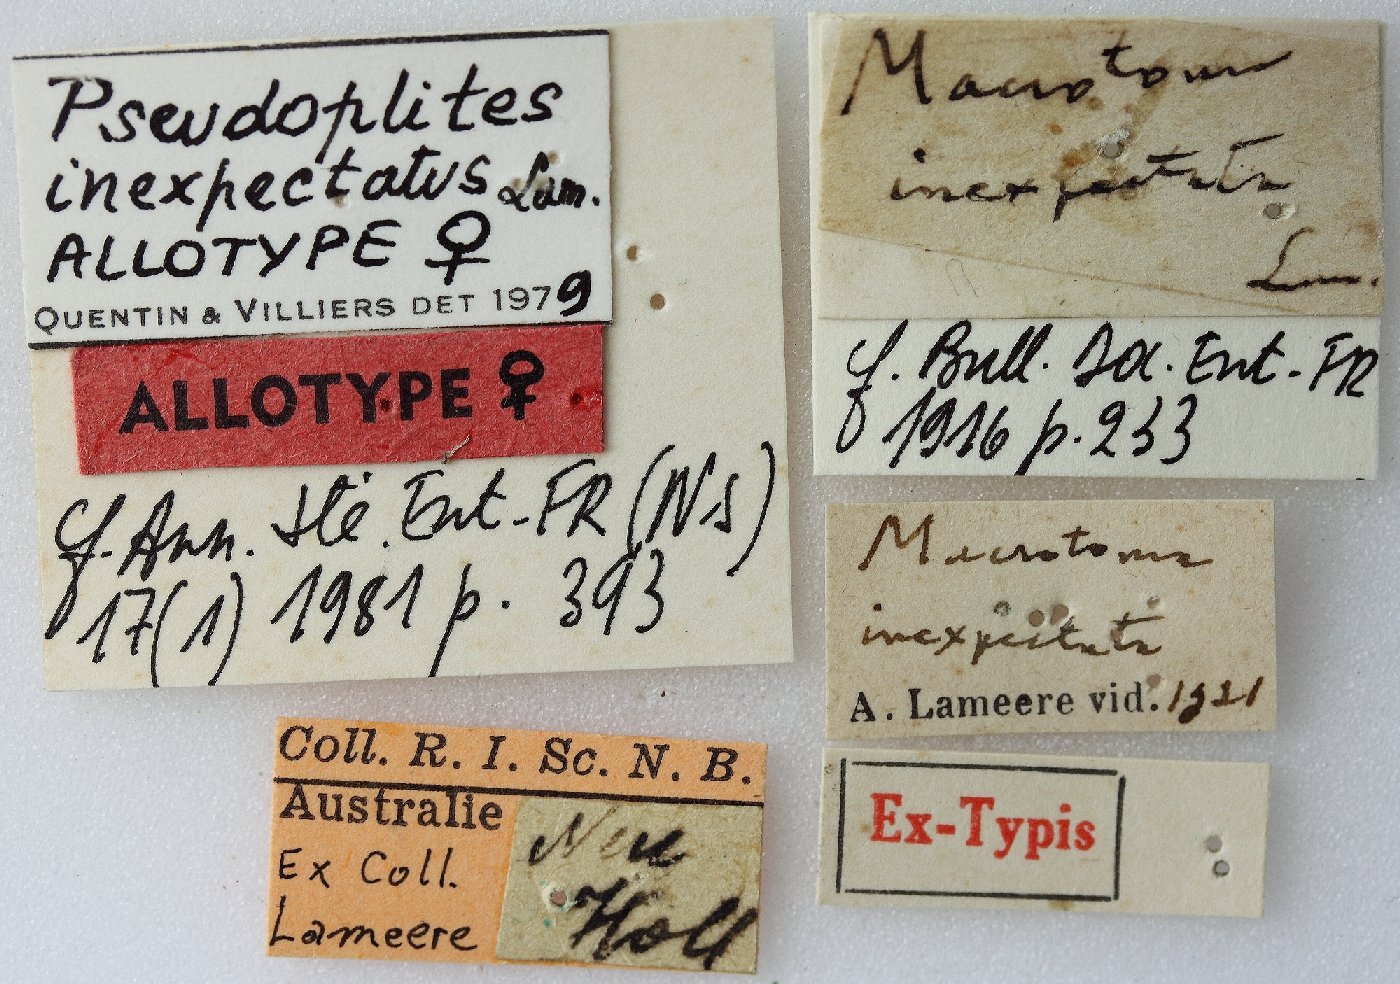 Pseudoplites
inexpectatus Lam.
ALLOTYPE ♀
QUENTIN & VILLIERS DET 1979
ALLOTYPE ♀
cf. Ann. Sté. Ent. FR (N.S)
17(1) 1981 p. 393
Macrotoma
inexpectata
Lam.
cf. Bull. Soc. Ent. FR
1916 p. 233
Macrotoma
inexpectata
A. Lameere vid. 1921
Ex-Typis
Coll. R. I. Sc. N. B.
Australie
Ex Coll.
Lameere
Neu
Holl